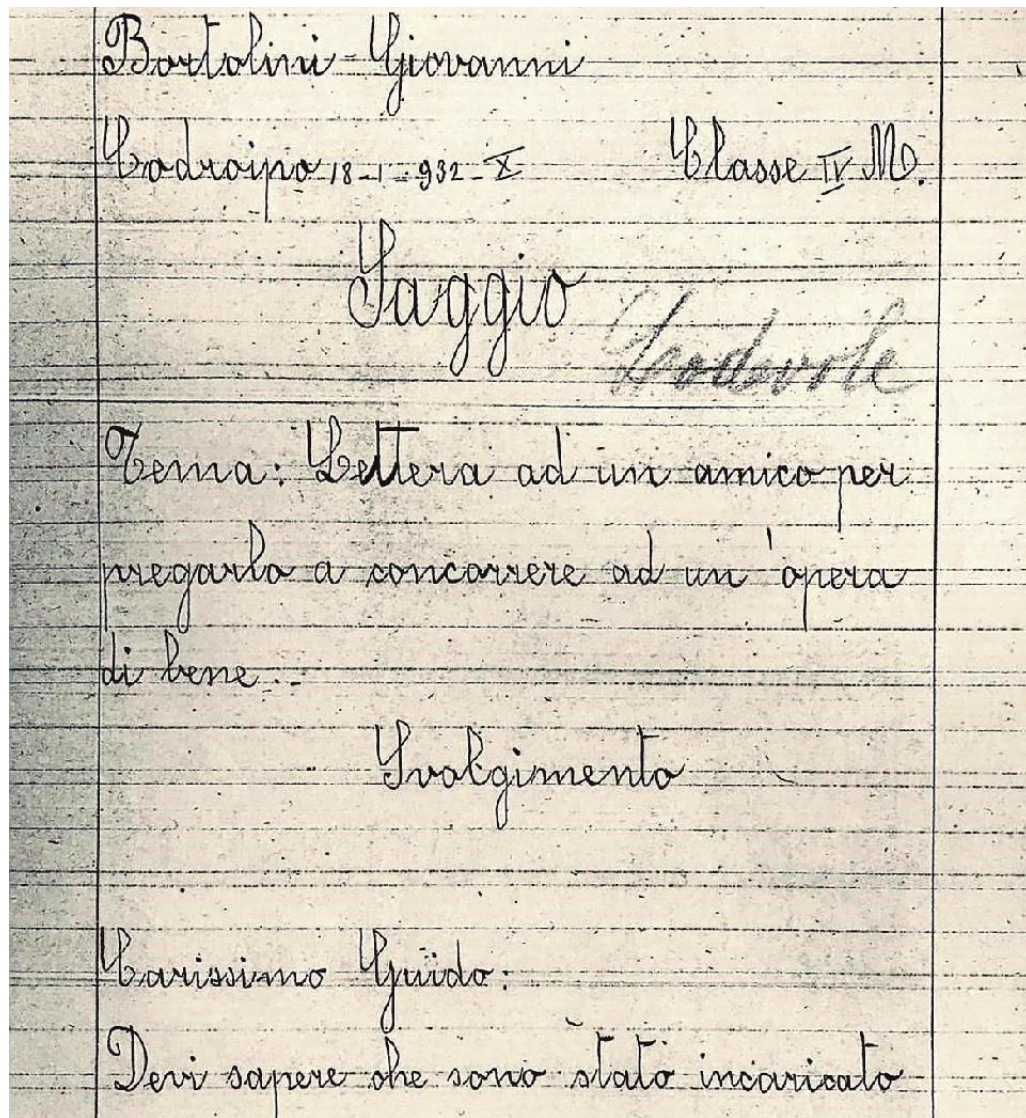 Bortolini Giovanni
Codroipo 18-1-932-X Classe IV M.
Saggio
Lodevole
Tema: Lettera ad un amico per
pregarlo a concorrere ad un'opera
di bene.
Svolgimento
Carissimo Guido:
Devi sapere che sono stato incaricato